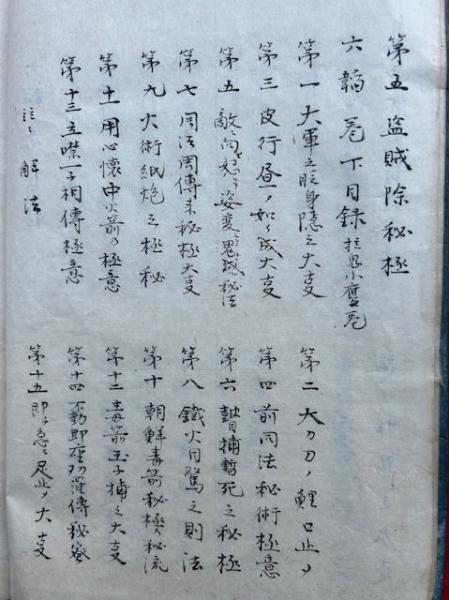 第五 盗賊除秘極
六韜巻下目録
第一 大軍之 身隠之大事
第二 大刀刀ノ鯉口止ノ
第三 夜行昼ノ如ク成大事
第四 前同法秘術極意
第五 敵向 姿変 鬼 秘法
第六 捕暫死之秘極
第七 同法 傳来秘極大事
第八 鐵火目驚之則法
第九 火術紙炮之極秘
第十 朝鮮毒箭秘極ノ秘流
第十一 用心懐中火箭ノ極意
第十二 毒箭玉子捕之大事
第十三 立噤一子相傳極意
第十四 不動即座 傳秘密
第十五 即急 足止ノ大事
解法